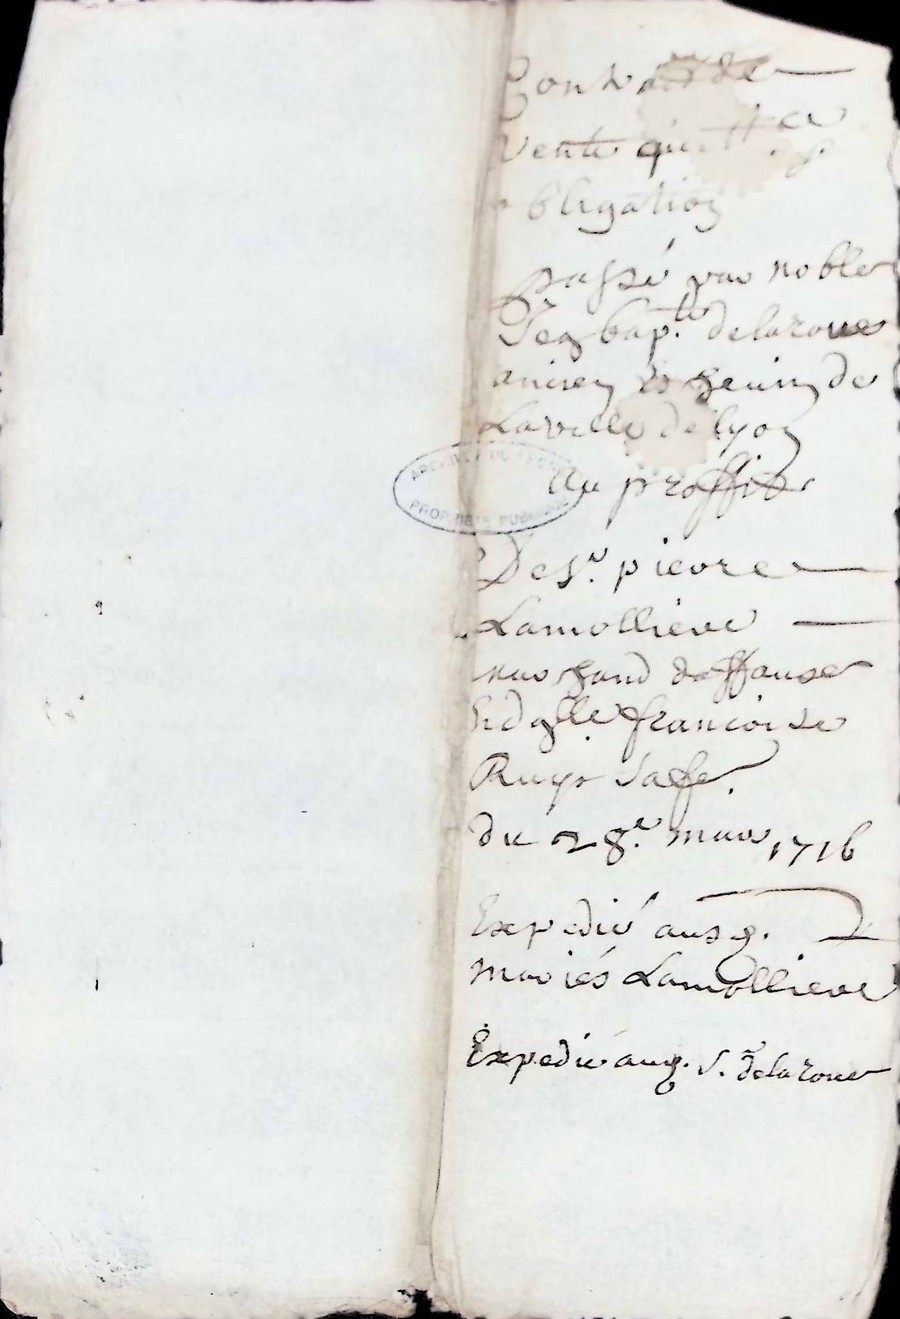 Contract de
vente quittance
obligation
passé par noble
Jean bap.te delaroue
ancien Eschevin de
Laville de lyon
Au proffit
De s.r pierre
Lamolliere
marchand
Et d.elle francoise
sa fe.
du 28.e mars 1716
Expedié ausd.
mariés Lamolliere
Expedié aud. s.r delaroue
ARCHIVES DU RHONE
PROPRIÉTÉ PUBLIQUE